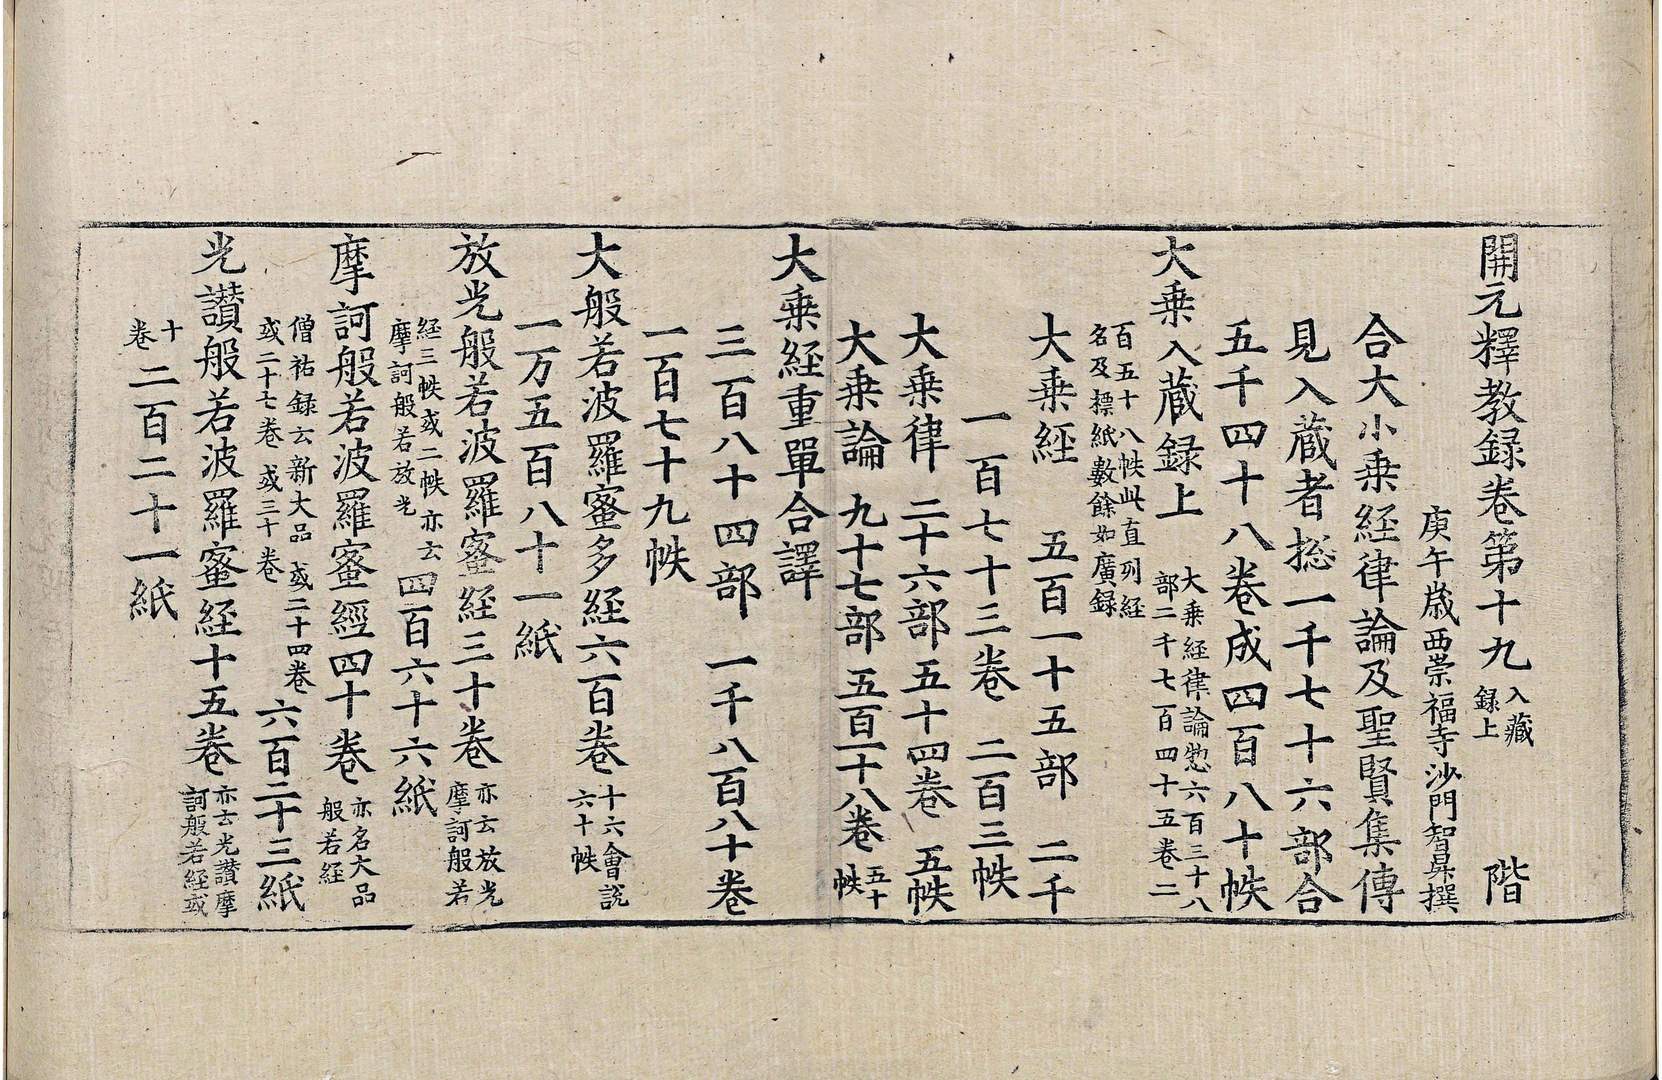 開元釋教録卷第十九入藏録上 階
庚午歳西崇福寺沙門智昇撰
合大小乗経律論及聖賢集傳
見入藏者捴一千七十六部合
五千四十八卷成四百八十帙
大乗入藏録上 大乗経律論惣六百三十八部二千七百四十五卷二
百五十八帙此直列経名及標紙數餘如廣録
大乗経 五百一十五部 二千
一百七十三卷 二百三帙
大乗律 二十六部 五十四卷 五帙
大乗論 九十七部 五百一十八卷 五十帙
大乗経重單合譯
三百八十四部 一千八百八十卷
一百七十九帙
大般若波羅蜜多経六百卷 十六會說六十帙
一万五百八十一紙
放光般若波羅蜜経三十卷 亦云放光摩訶般若
経三帙或二帙亦云摩訶般若放光 四百六十六紙
摩訶般若波羅蜜經四十卷 亦名大品般若経
僧祐録云新大品或二十四卷或二十七卷或三十卷 六百二十三紙
光讃般若波羅蜜経十五卷 亦云光讃摩訶般若経或
十卷 二百二十一紙